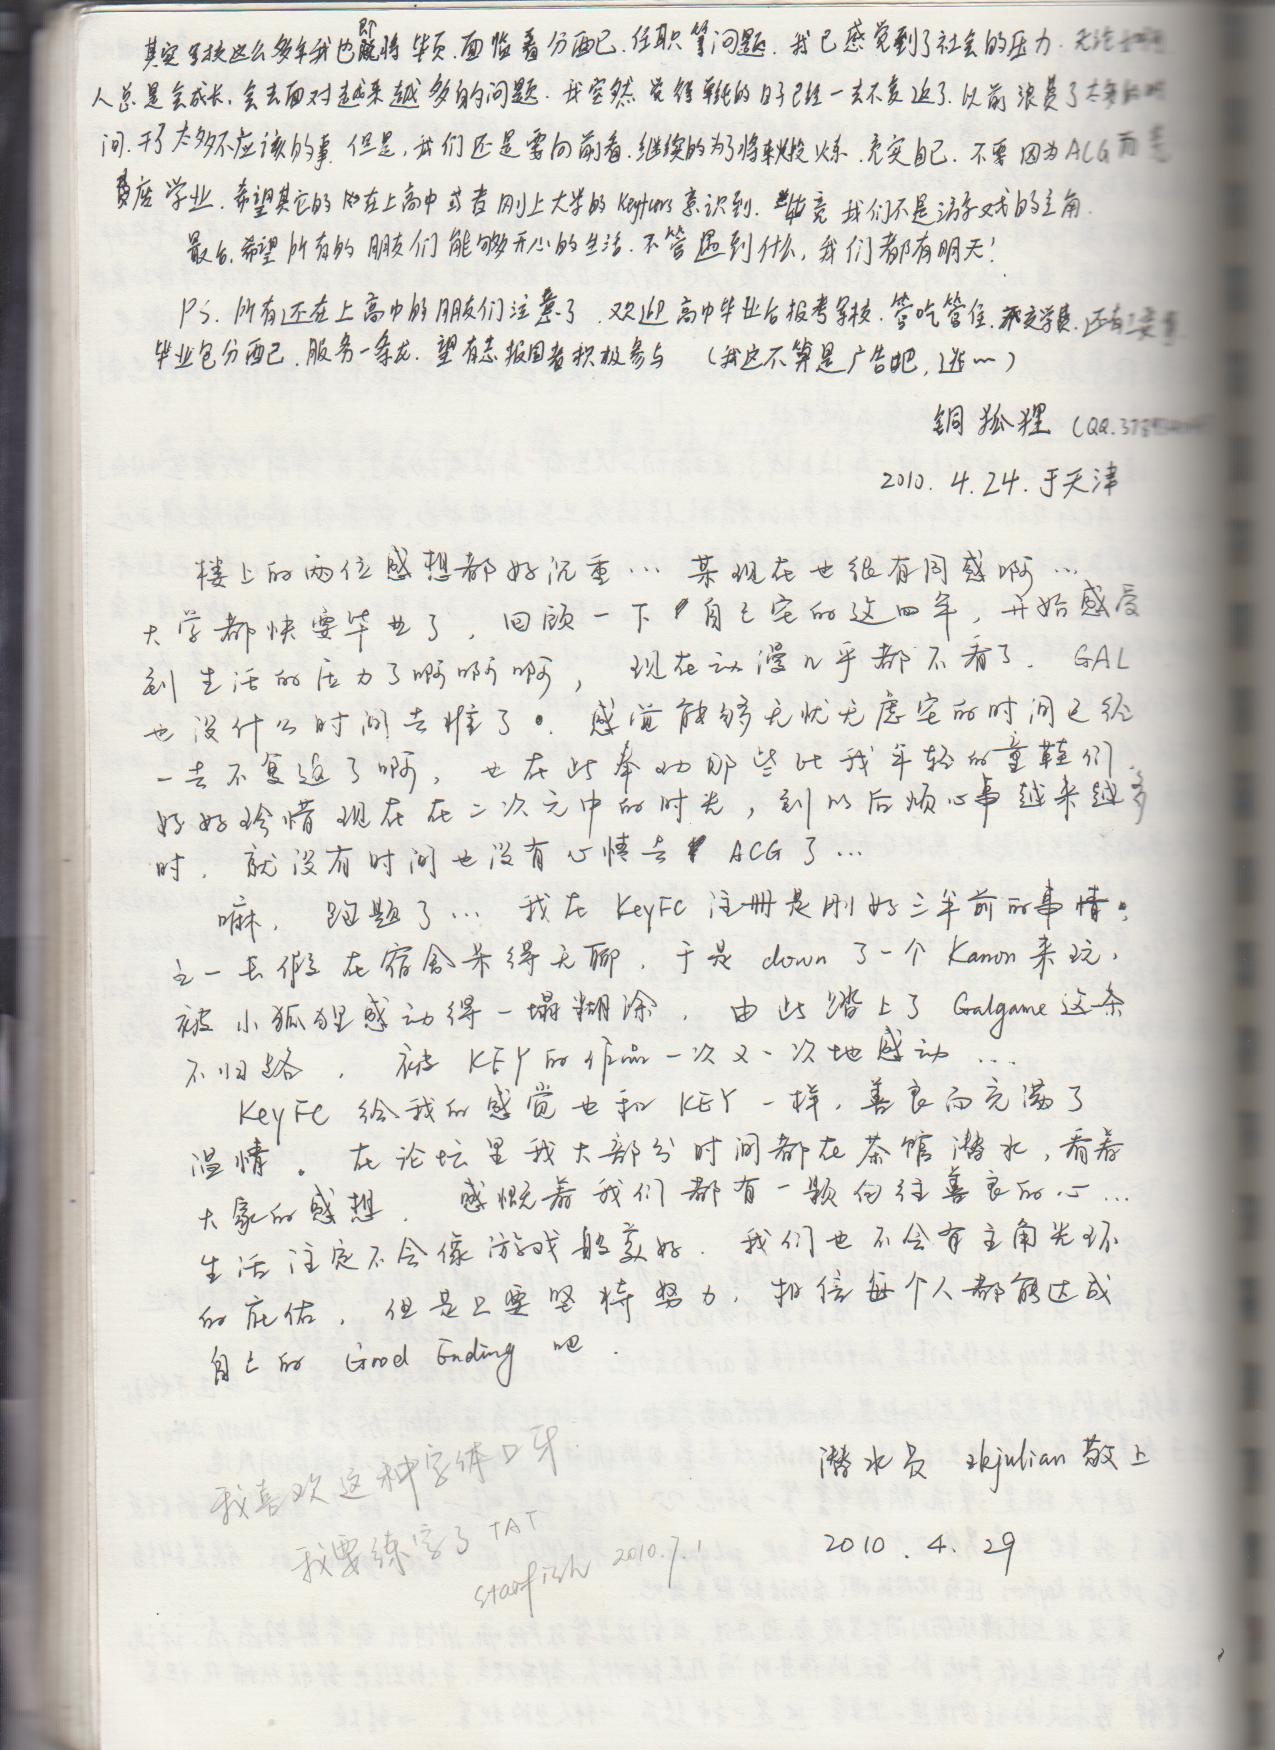 其实军校这么多年我也即将毕页.面临着分配.任职等问题.我已感觉到了社会的压力.无论
人总是会成长.会去面对越来越多的问题.我突然觉得单纯的日子已经一去不复返了.以前浪费了太多的时
间.干了太多不应该的事.但是,我们还是要向前看.继续的为了将来 炼.充实自己.不要因为ACG而荒
废学业.希望其它的 在上高中或者刚上大学的Keyfans意识到.毕竟我们不是游戏的主角.
最后,希望所有的朋友们能够开心的生活.不管遇到什么,我们都有明天!
PS.所有还在上高中的朋友们注意了.欢迎高中毕业后报考军校.管吃管住.不交学费.还有工资
毕业包分配.服务一条龙.望有志报国者积极参与 (我这不算是广告吧,逃~)
铜狐狸 (QQ.
2010.4.24.于天津
楼上的两位感想都好沉重… 某现在也很有同感啊…
大学都快要毕业了,回顾一下自己宅的这四年,开始感受
到生活的压力了啊啊啊,现在动漫几乎都不看了.GAL
也没什么时间去推了。感觉能够无忧无虑宅的时间已经
一去不复返了啊,也在此奉劝那些比我年轻的童鞋们.
好好珍惜现在在二次元中的时光,到以后烦心事越来越多
时.就没有时间也没有心情去ACG了…
嘛,跑题了… 我在KeyFC注册是刚好三年前的事情。
五一长假在宿舍呆得无聊.于是down了一个Kanon来玩,
被小狐狸感动得一塌糊涂.由此踏上了Galgame这条
不归路.被KEY的作品一次又一次地感动…
KeyFC给我的感觉也和KEY一样,善良而充满了
温情。在论坛里我大部分时间都在茶馆潜水,看着
大家的感想.感慨着我们都有一颗向往善良的心…
生活注定不会像游戏般美好.我们也不会有主角光环
的庇佑,但是只要坚持努力,相信每个人都能达成
自己的Good Ending吧.
潜水员 zkjulian敬上
2010.4.29
我喜欢这种字体口牙
我要练字了TAT
starfish 2010.7.1